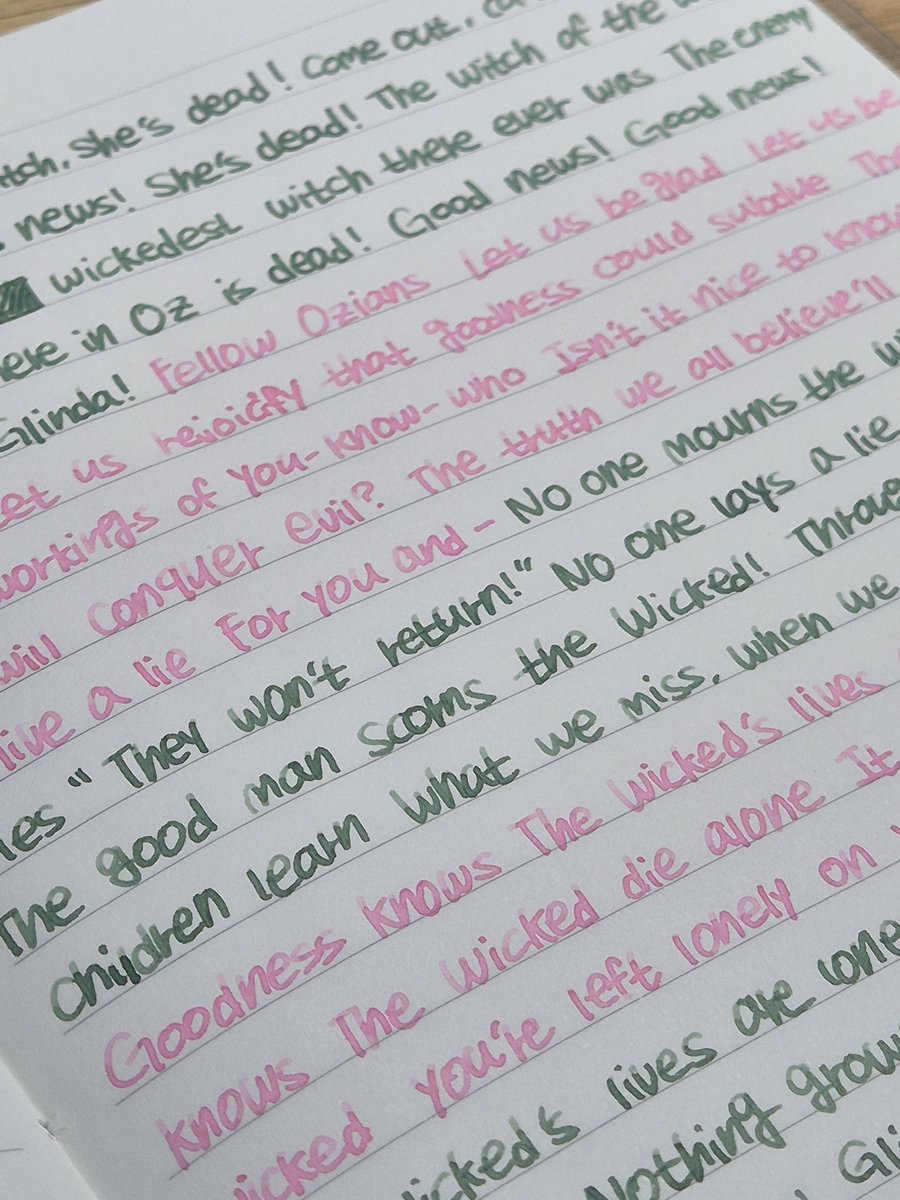 she's dead! Come out,
news! She's dead! The witch of the
wickedest witch there ever was The enemy
here in Oz is dead! Good news! Good news!
Glinda! Fellow Ozians Let us be glad Let us be
Let us rejoicify that goodness could subdue The
workings of you-know-who Isn't it nice to know
will conquer evil? The truth we all believe'll
live a lie For you and- No one mourns the
"They won't return!" No one lays a lie
The good man scorns the Wicked! Through
Children learn What we miss, when we
Goodness knows The Wicked's lives
knows The Wicked die alone It
you're left lonely on
lives are
Nothing